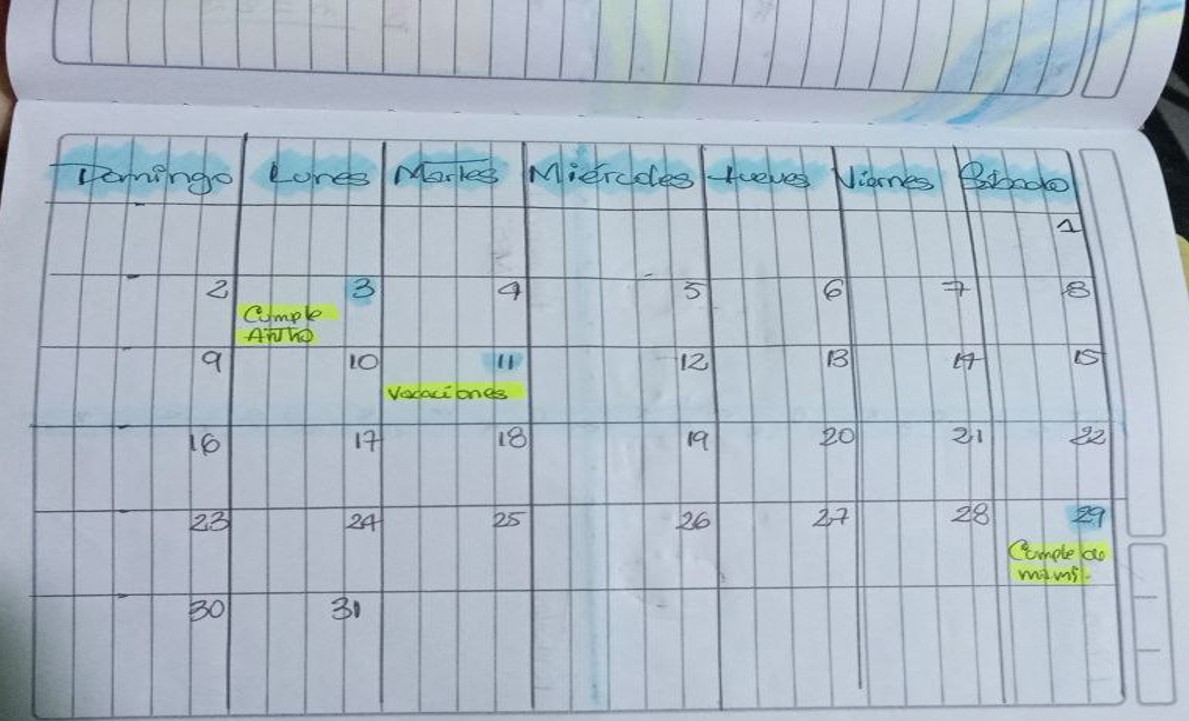 Domingo Lunes Martes Miércoles Jueves Viernes Sábado
1
2 3 4 5 6 7 8
Cumple
Antho
9 10 11 12 13 14 15
Vacaciones
16 17 18 19 20 21 22
23 24 25 26 27 28 29
Cumple de
mami.
30 31